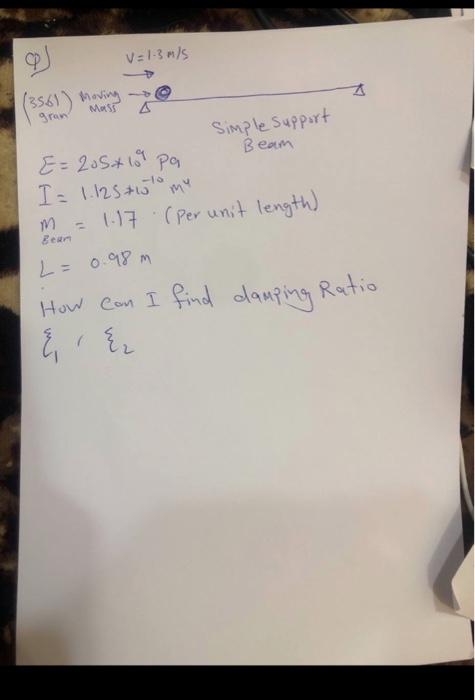 Q)
V = 1.3 m/s
(3561) Moving
gram Mass
Simple Support
Beam
E = 205*10⁹ Pa
I = 1.125*10⁻¹⁰ m⁴
m = 1.17 (per unit length)
Beam
L = 0.98 m
How can I find damping Ratio
ξ₁ , ξ₂